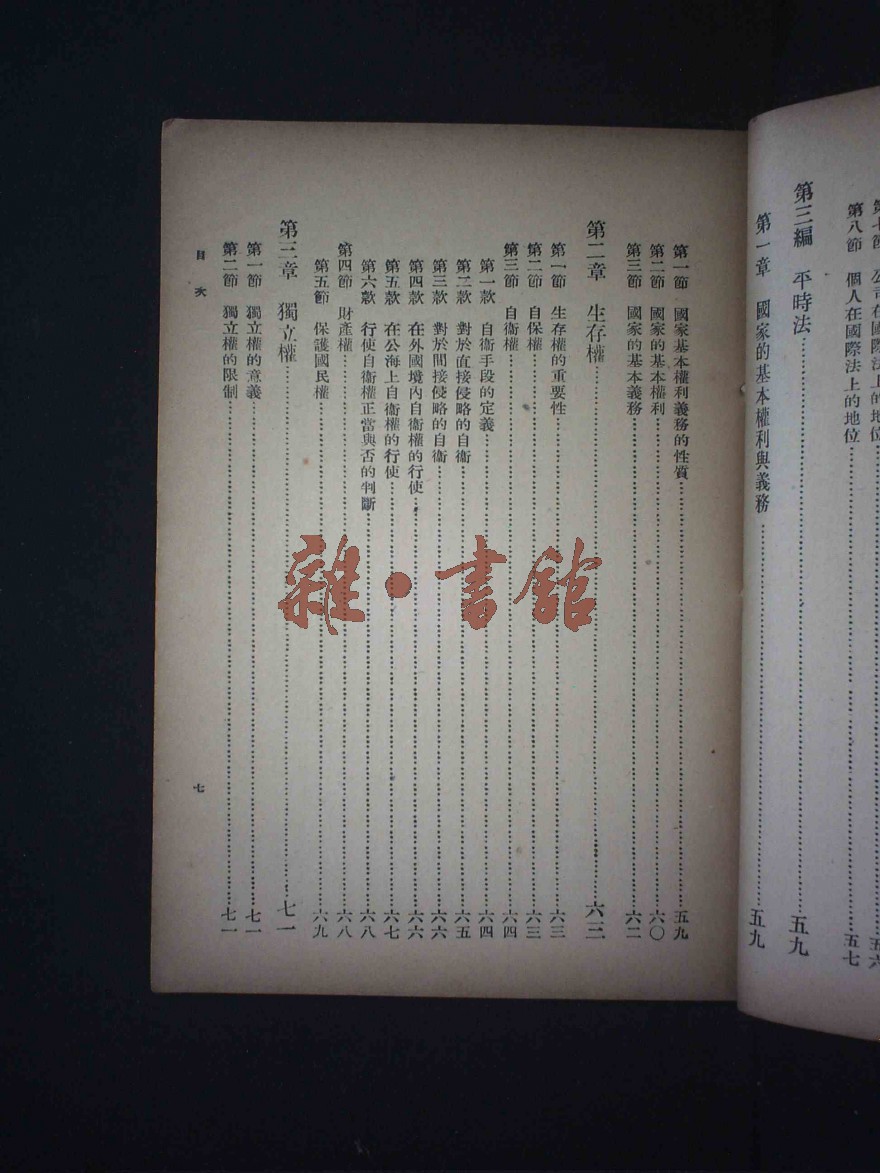 公司在國際法上的地位……五六
第八節 個人在國際法上的地位……五七
第三編 平時法……五九
第一章 國家的基本權利與義務……五九
第一節 國家基本權利義務的性質……五九
第二節 國家的基本權利……六〇
第三節 國家的基本義務……六二
第二章 生存權……六三
第一節 生存權的重要性……六三
第二節 自保權……六三
第三節 自衞權……六四
第一款 自衞手段的定義……六四
第二款 對於直接侵略的自衞……六五
第三款 對於間接侵略的自衞……六六
第四款 在外國境內自衞權的行使……六六
第五款 在公海上自衞權的行使……六七
第六款 行使自衞權正當與否的判斷……六八
第四節 財產權……六八
第五節 保護國民權……六九
第三章 獨立權……七一
第一節 獨立權的意義……七一
第二節 獨立權的限制……七一
目次
七
雜·書館